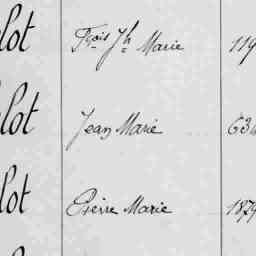 lot Fçois Jh Marie 119
lot Jean Marie 634
lot Pierre Marie 1879